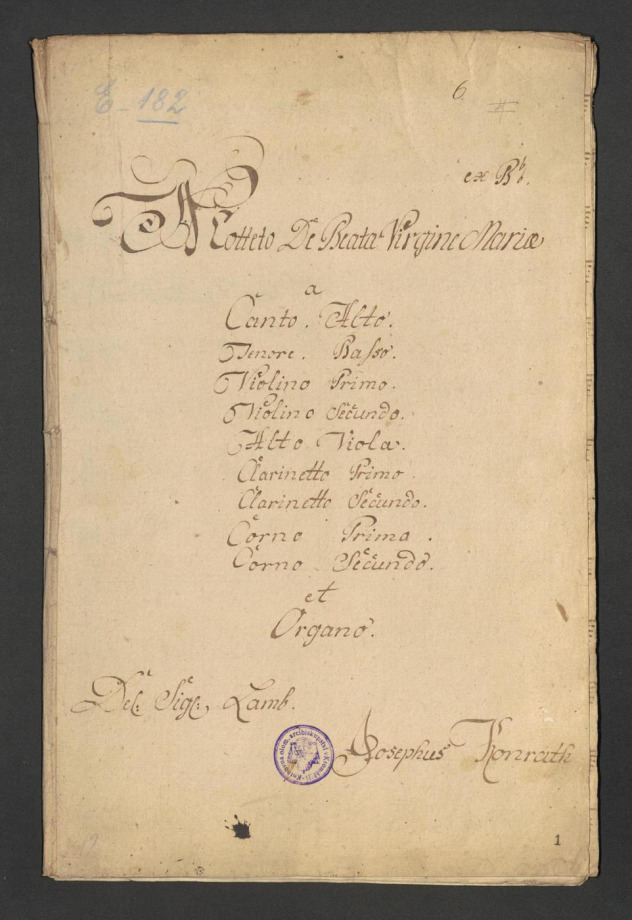 E - 182
6
ex B♭.
Motteto De Beata Virgine Mariæ
a
Canto. Alto.
Tenore. Basso.
Violino Primo.
Violino Secundo.
Alto Viola.
Clarinetto Primo
Clarinetto Secundo.
Corno Primo.
Corno Secundo.
et
Organo.
Del: Sigl: Lamb.
Josephus Konrath
1